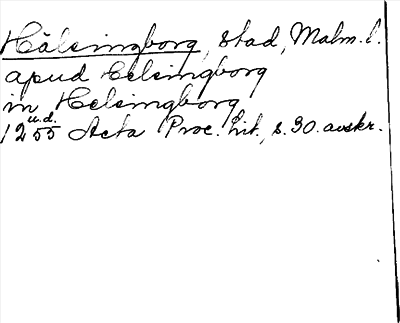 Hälsingborg, stad, Malm. l.
apud Helsingborg
in Helsingborg
u.d.
1255 Acta Proc. Lit., s. 30. avskr.